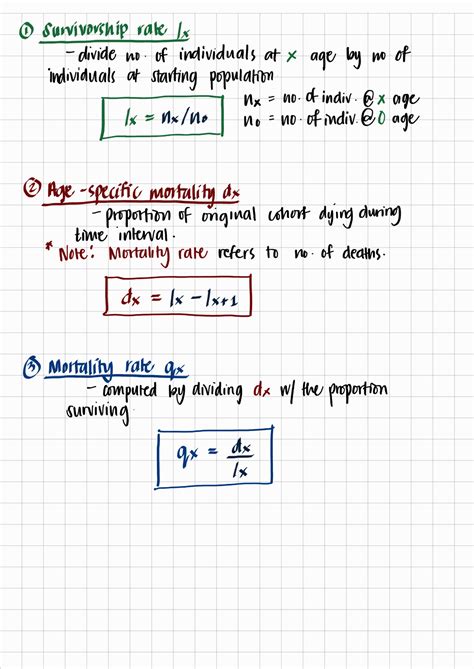 ① Survivorship rate lx
- divide no. of individuals at x age by no of
individuals at starting population
lx = nx/n0
nx = no. of indiv. @ x age
n0 = no. of indiv. @ 0 age
② Age-specific mortality dx
- proportion of original cohort dying during
time interval.
* Note: Mortality rate refers to no. of deaths.
dx = lx - lx+1
③ Mortality rate qx
- computed by dividing dx w/ the proportion
surviving
qx = dx/lx